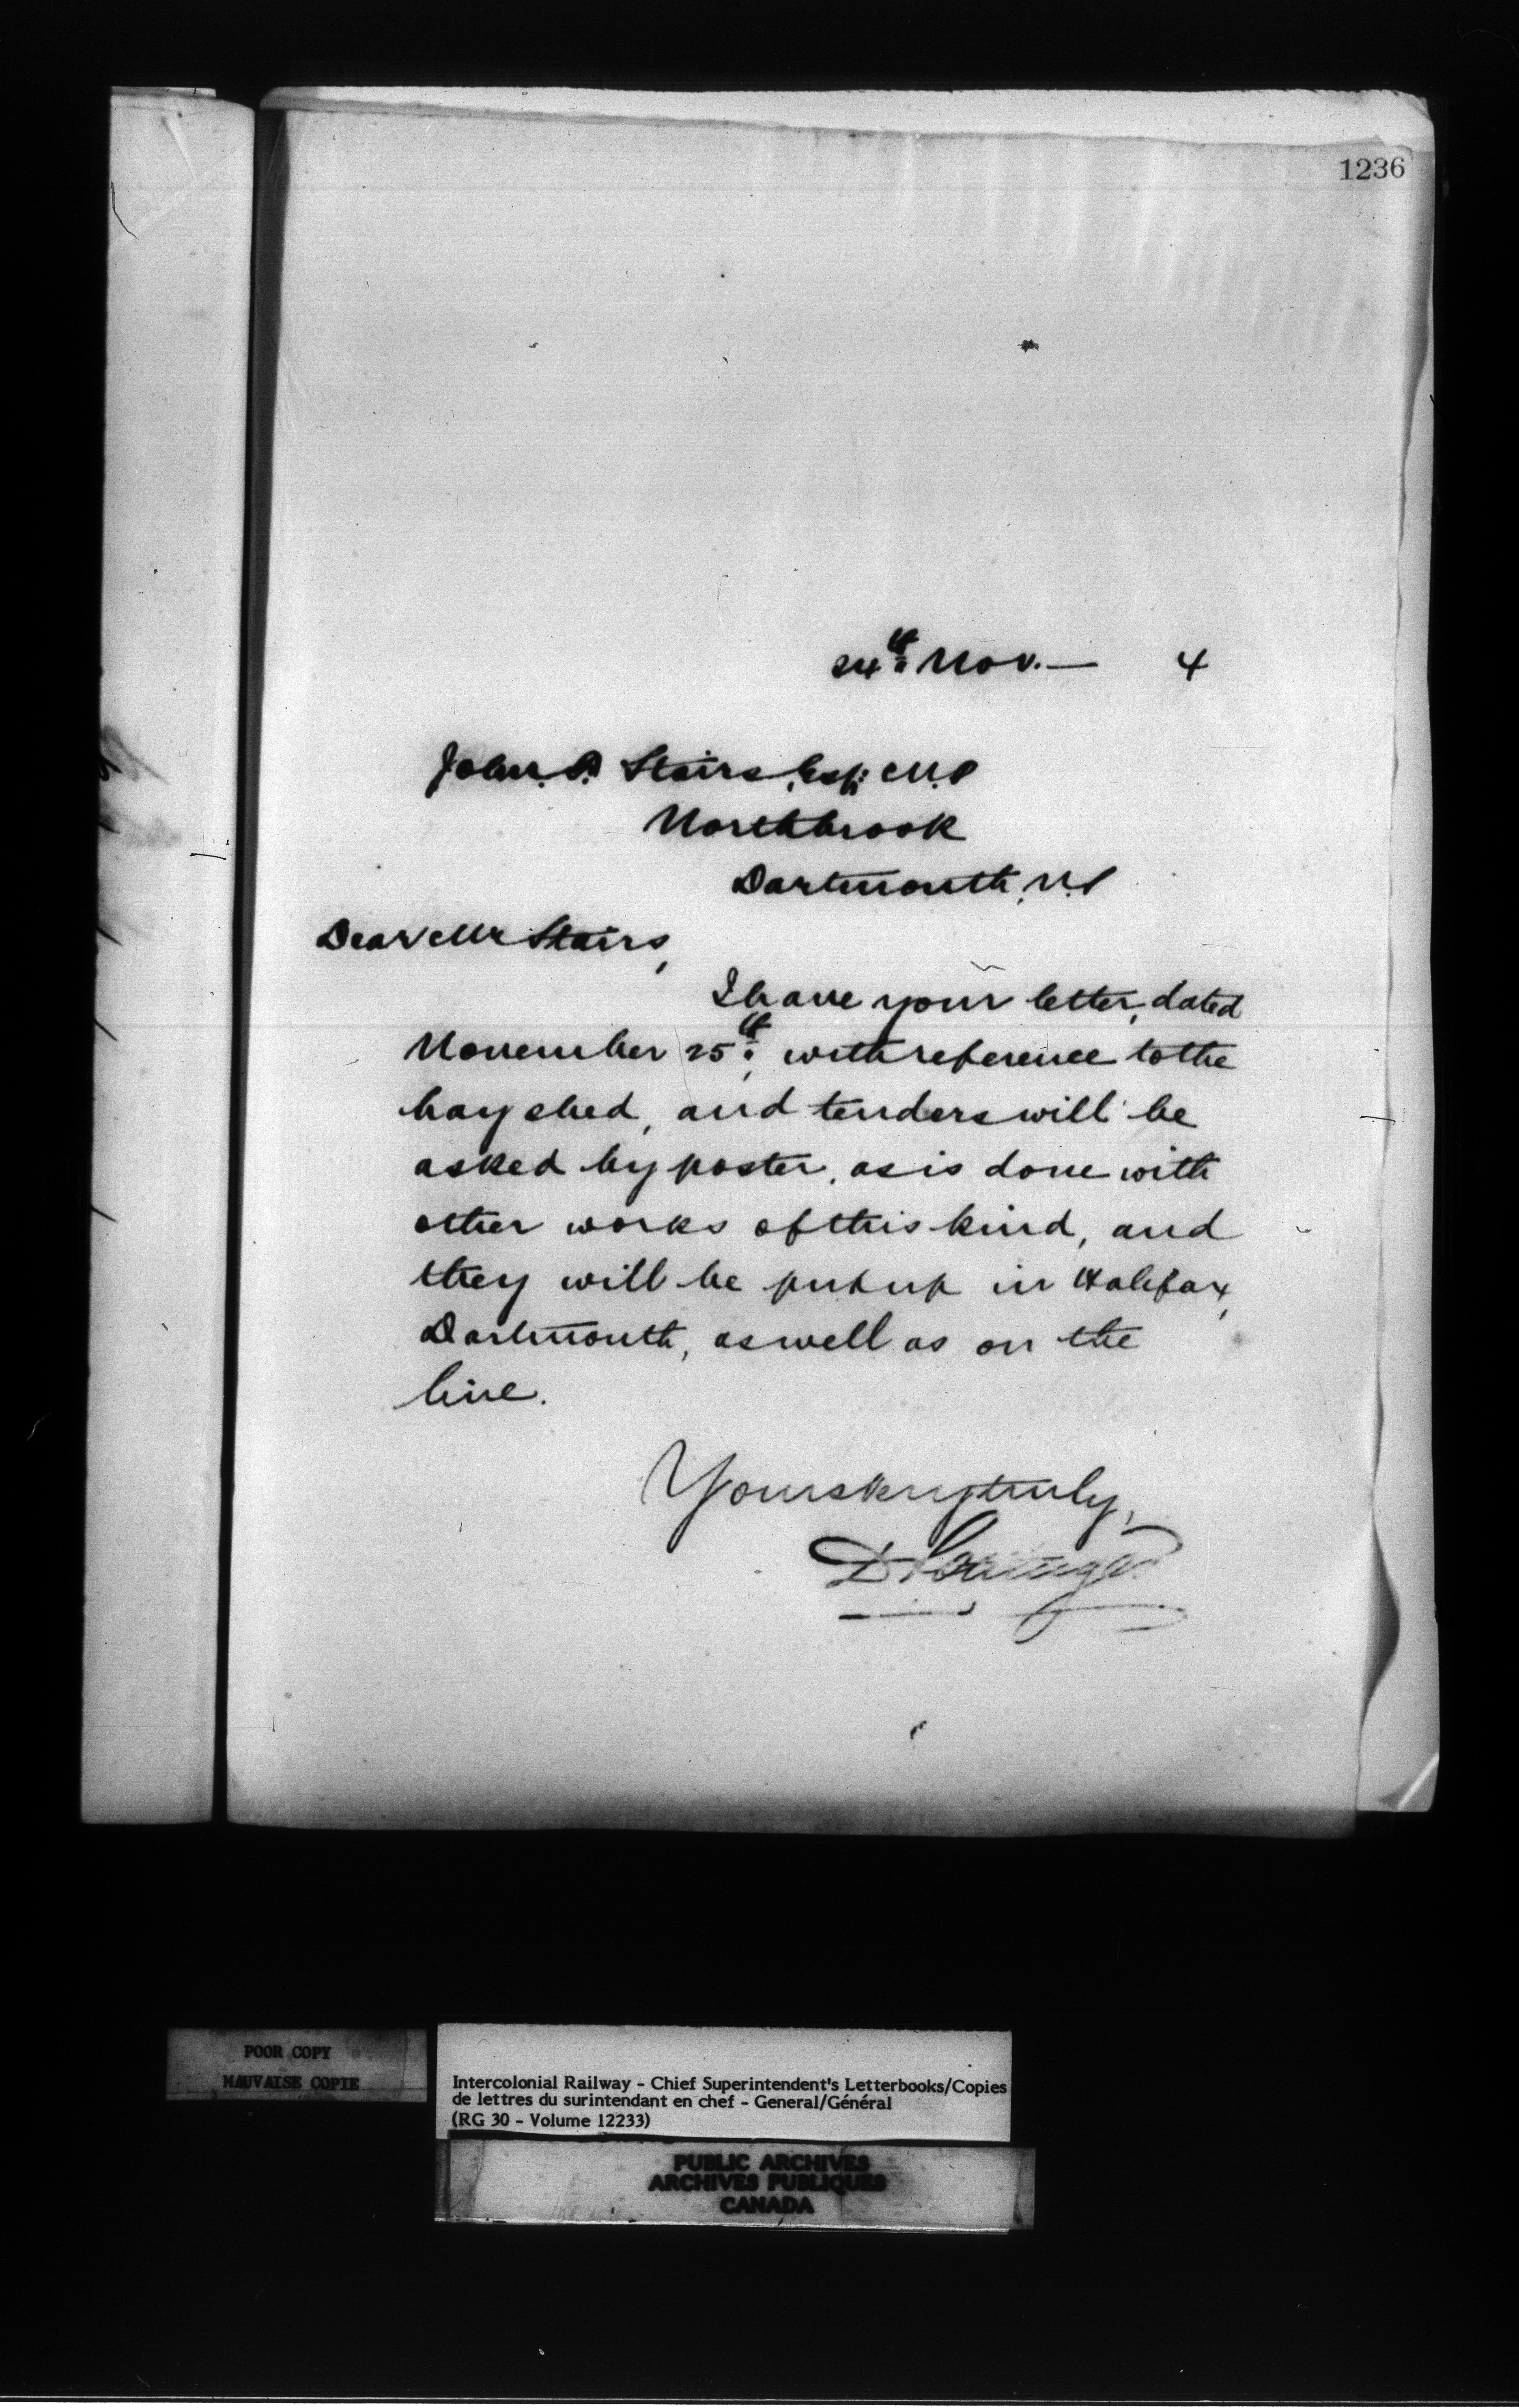 1236
24th Nov. — 4
John. F. Stairs, Esq: M.P
Northbrook
Dartmouth, N.S
Dear Mr Stairs,
I have your letter, dated
November 25th, with reference to the
hay shed, and tenders will be
asked by poster, as is done with
other works of this kind, and
they will be put up in Halifax,
Dartmouth, as well as on the
line.
Yours very truly,
D Pottinger
POOR COPY
MAUVAISE COPIE
Intercolonial Railway - Chief Superintendent's Letterbooks/Copies
de lettres du surintendant en chef - General/Général
(RG 30 - Volume 12233)
PUBLIC ARCHIVES
ARCHIVES PUBLIQUES
CANADA